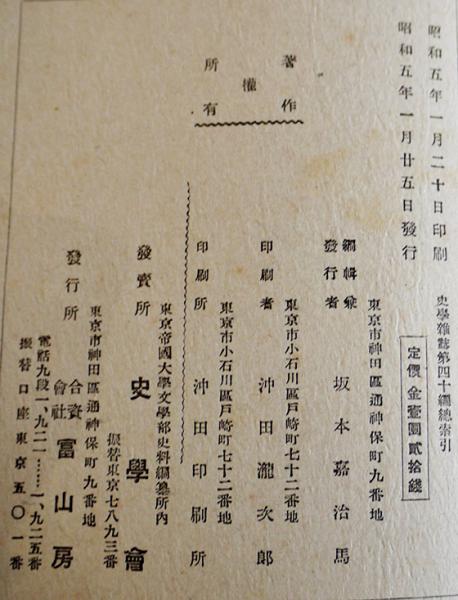 昭和五年一月二十日印刷
昭和五年一月廿五日發行
史學雜誌第四十編總索引
定價金壹圓貳拾錢
著作
權
所有
東京市神田區通神保町九番地
編輯兼
發行者
坂本嘉治馬
東京市小石川區戸崎町七十二番地
印刷者
沖田瀧次郎
東京市小石川區戸崎町七十二番地
印刷所
沖田印刷所
東京帝國大學文學部史料編纂所内
發賣所
史學會
振替東京七八九三番
東京市神田區通神保町九番地
發行所
合資
會社
冨山房
電話九段一、九二一……一、九二五番
振替口座東京五〇一番